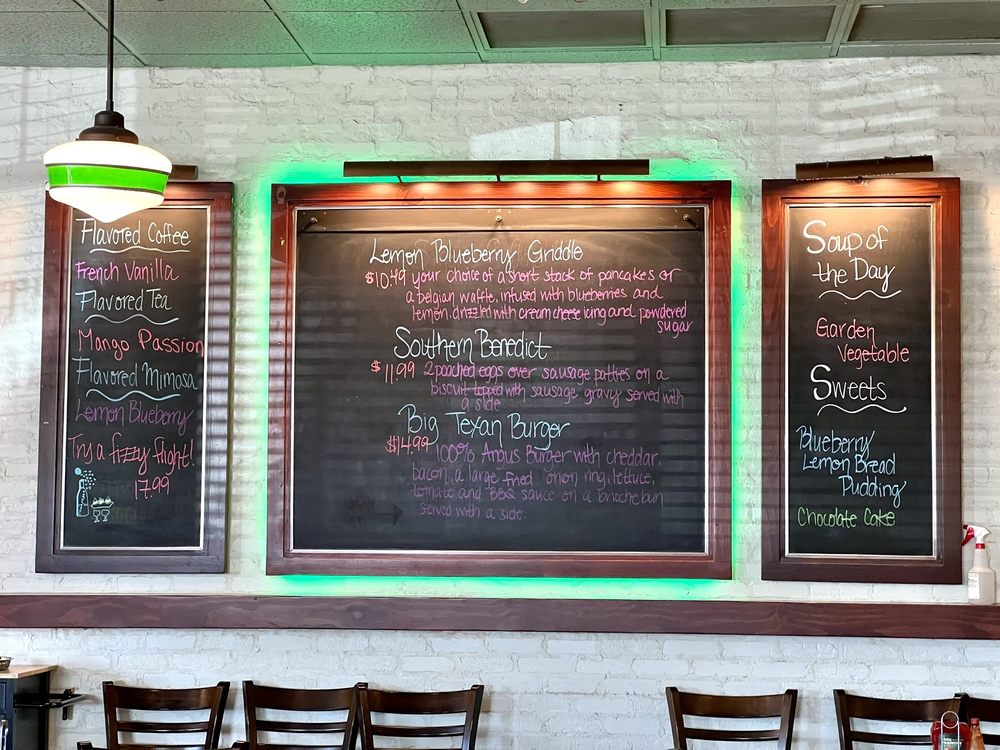 Flavored Coffee
French Vanilla
Flavored Tea
Mango Passion
Flavored Mimosa
Lemon Blueberry
Try a fizzy flight!
17.99
Lemon Blueberry Griddle
$10.49 your choice of a short stack of pancakes or
a belgian waffle, infused with blueberries and
lemon. drizzled with cream cheese icing and powdered
sugar
Southern Benedict
$11.99 2 poached eggs over sausage patties on a
biscuit topped with sausage gravy served with
a side
Big Texan Burger
$14.99 100% Angus Burger with cheddar,
bacon, a large fried onion ring, lettuce,
tomato and BBQ sauce on a brioche bun
served with a side.
Soup of
the Day
Garden
Vegetable
Sweets
Blueberry
Lemon Bread
Pudding
Chocolate Cake